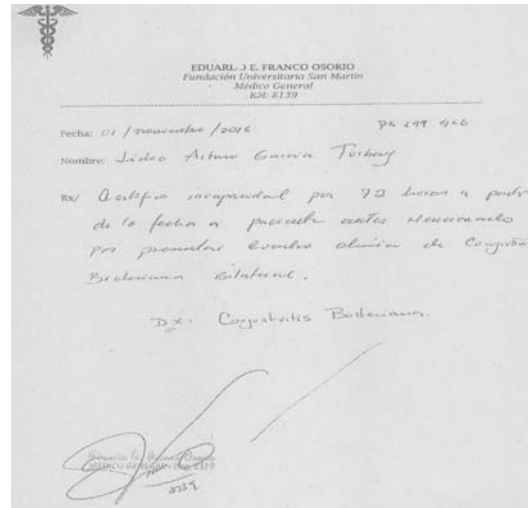 EDUARD E. FRANCO OSORIO
Fundación Universitaria San Martín
Médico General
RM: 8139
Fecha: 01 / noviembre / 2016
Nombre: Arturo Garcia
Rx/ Certifico incapacidad por 72 horas a partir
de la fecha a paciente antes mencionado
por presentar cuadro clinico de
Bacteriana bilateral.
Dx: Conjuntivitis Bacteriana.
MEDICO GENERAL - Reg. 8139
8139